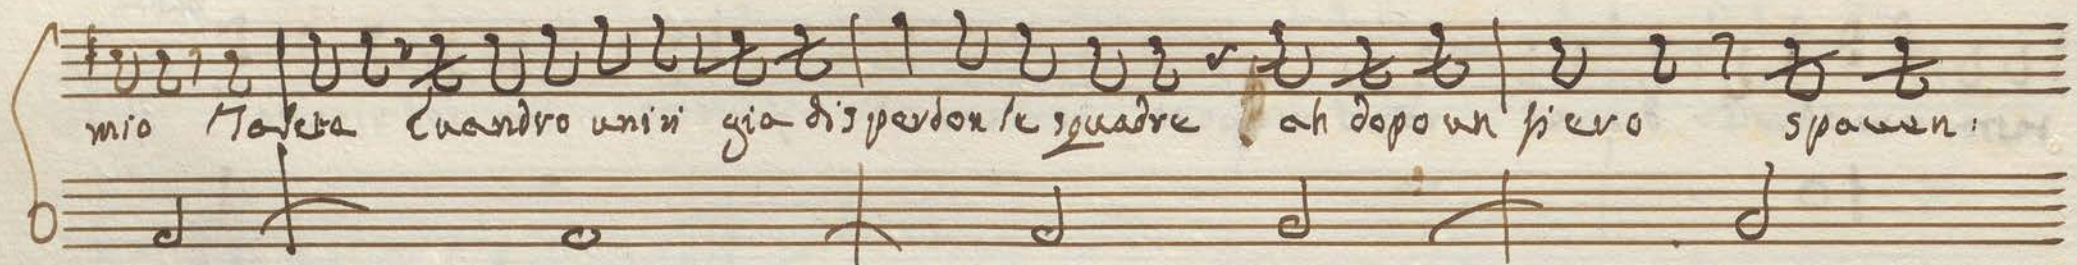 mio Maseta Euandro unisi gia disperdon le squadre ah dopo un fiero spauen: